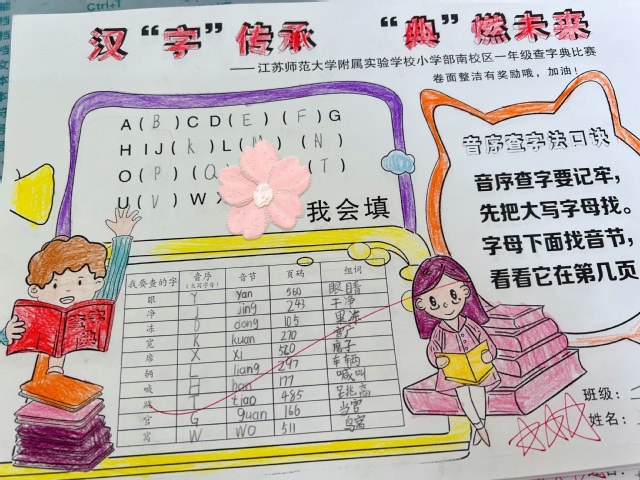 汉“字”传承 “典”燃未来
——江苏师范大学附属实验学校小学部南校区一年级查字典比赛
卷面整洁有奖励哦,加油!
A(B)CD(E)(F)G
HIJ(k)L( (N)
O(P)(Q (T)
U(V)WX
我会填
音序查字法口诀
音序查字要记牢,
先把大写字母找。
字母下面找音节,
看看它在第几页
我要查的字 音序(大写字母) 音节 页码 组词
眼 Y yan 560 眼睛
净 J jing 243 干净
冻 D dong 105 果冻
宽 K kuan 270
席 X xi 520 席子
辆 L liang 297 车辆
喊 H han 177 喊叫
跳 T tiao 485 跳高
官 G guan 166 当官
窝 W wo 511 鸟窝
班级:
姓名: